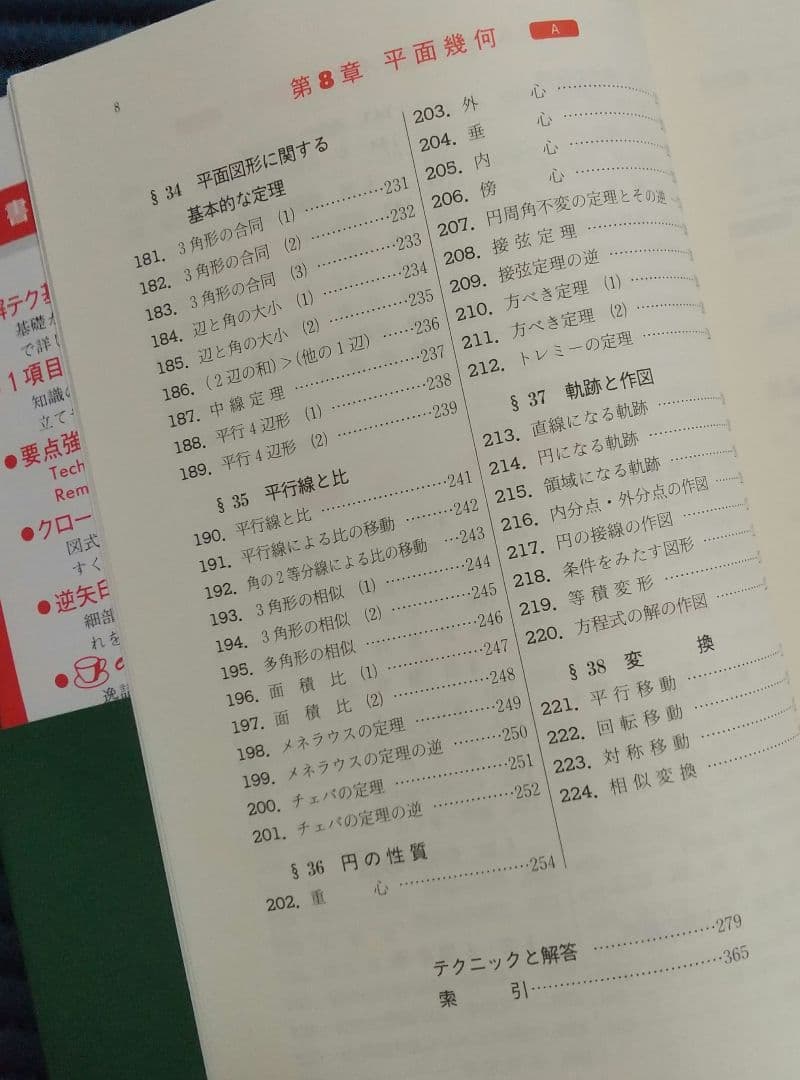 8
第8章 平面幾何
A
§34 平面図形に関する
基本的な定理
181. 3角形の合同 (1) ……………231
182. 3角形の合同 (2) ……………232
183. 3角形の合同 (3) ……………233
184. 辺と角の大小 (1) ……………234
185. 辺と角の大小 (2) ……………235
186. (2辺の和)>(他の1辺) ……236
187. 中線定理 ……………237
188. 平行4辺形 (1) ……………238
189. 平行4辺形 (2) ……………239
§35 平行線と比
190. 平行線と比 ……………241
191. 平行線による比の移動 ………242
192. 角の2等分線による比の移動 …243
193. 3角形の相似 (1) ……………244
194. 3角形の相似 (2) ……………245
195. 多角形の相似 ……………246
196. 面積比 (1) ……………247
197. 面積比 (2) ……………248
198. メネラウスの定理 ……………249
199. メネラウスの定理の逆 ………250
200. チェバの定理 ……………251
201. チェバの定理の逆 ……………252
§36 円の性質
202. 重心 ……………254
203. 外心 ……………
204. 垂心 ……………
205. 内心 ……………
206. 傍心 ……………
207. 円周角不変の定理とその逆 ……
208. 接弦定理 ……………
209. 接弦定理の逆 ……………
210. 方べき定理 (1) ……………
211. 方べき定理 (2) ……………
212. トレミーの定理 ……………
§37 軌跡と作図
213. 直線になる軌跡 ……………
214. 円になる軌跡 ……………
215. 領域になる軌跡 ……………
216. 内分点・外分点の作図 ……
217. 円の接線の作図 ……………
218. 条件をみたす図形 ……………
219. 等積変形 ……………
220. 方程式の解の作図 ……………
§38 変換
221. 平行移動 ……………
222. 回転移動 ……………
223. 対称移動 ……………
224. 相似変換 ……………
テクニックと解答 ……………279
索引 ……………365
書
解テク基
基礎
で詳し
1項目
知識の
立て
●要点強
Tech
Rem
●クロー
図式
すく
●逆矢印
細部
れを
●
逸話